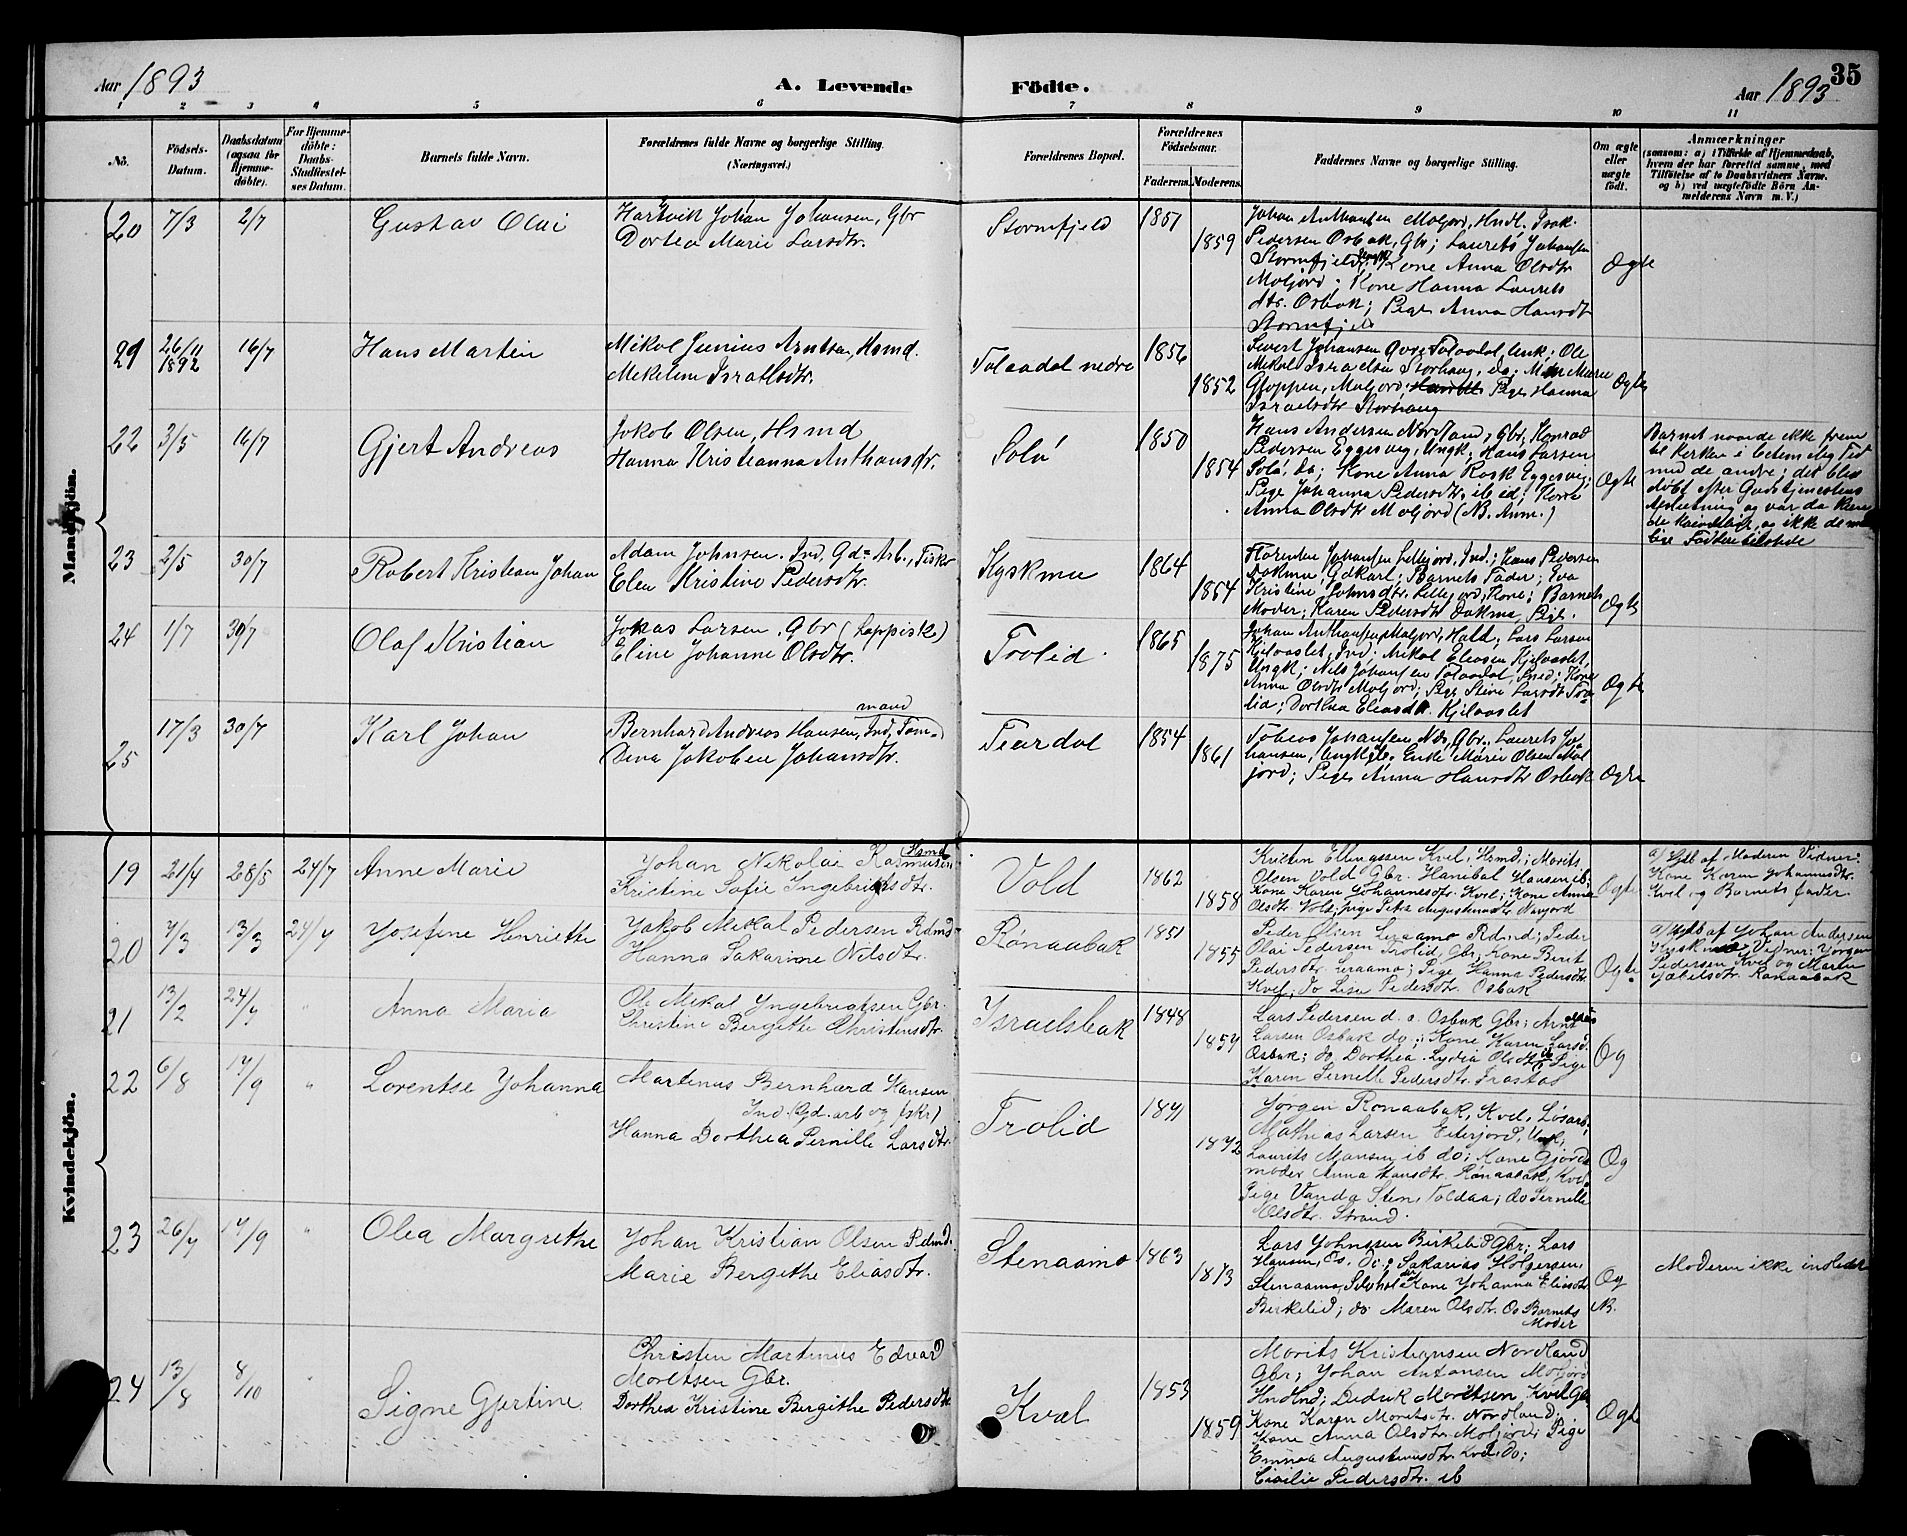 Aar 1893
A. Levende Födte.
Aar 1893
35
1 2 3 4 5 6 7 8 9 10 11
No.
Födsels-Datum.
Daabsdatum (ogsaa for Hjemme-döbte).
For Hjemme-döbte: Daabs-Stadfæstel-ses Datum.
Barnets fulde Navn.
Forældrenes fulde Navne og borgerlige Stilling. (Næringsvei.)
Forældrenes Bopæl.
Forældrenes Födselsaar.
Faderens. Moderens.
Faddernes Navne og borgerlige Stilling.
Om ægte eller uægte födt.
Anmærkninger
(saasom: a) i Tilfælde af Hjemmedaab, hvem der har forrettet samme, med Tilföielse af to Daabsvidners Navne. og b) ved uægtefödte Börn An-melderens Navn m. V.)
Mandkjön.
20 7/3 2/7 Gustav Olai
Hartvik Johan Johansen, Gbr
Dortea Marie Larsdtr.
Stormfjeld 1857 1859
Johan Anthansen Moljord, Hndl. Isak
Pedersen Osbak, Gbr; Laurets Johansen
Stormfjeld; Kone Anna Olsdtr
Moljord; Kone Hanna Laurets
dtr. Osbak; Pige Anna Hansdtr
Stormfjeld
Ægte
21 26/11 1892 16/7 Hans Martin
Mikal Junius Arntsen, Hsmd.
Mekeline Israelsdtr.
Tolaadal nedre 1856 1852
Sivert Johansen Tolaadal, Unk; Ole
Mikal Israelsen Storhaug, do; Marie
Gloppen, Moljord; Pige Hanna
Israelsdtr Storhaug
Ægte
22 3/5 16/7 Gjert Andreas
Jakob Olsen, Hsmd
Hanna Kristianna Anthansdr.
Solö 1850 1854
Hans Andersen Nordland, Gbr, Konrad
Pedersen Eggesvig, Ungk; Hans Larsen
Solö, do; Kone Anna Rosk Eggesvig;
Pige Johanna Pedersdtr. ib id; Kone
Anna Olsdtr Moljord (NB. Anm.)
Ægte
Barnet naaede ikke frem
til Kirken i betimelig Tid
med de andre; det blev
döbt efter Gudstjenestens
Afslutning og var da kun
de kvindelige, og ikke de mand
lige Faddere tilstede
23 2/5 30/7 Robert Kristian Johan
Adam Johnsen. Ind, Gd= Arb., Fisker
Elen Kristine Pedersdtr.
Kyskmu 1864 1854
Florentin Johansen Lillejord, Ind.; Hans Pedersen
Dokmu, Gdkarl; Barnets Fader; Eva
Kristine Johnsdtr. Lillejord, Kone; Barnets
Moder; Karen Pedersdtr Dokmu, Pige.
Ægte
24 1/7 30/7 Olaf Kristian
Jokas Larsen. Gbr (Lappisk)
Eline Johanne Olsdtr.
Trolid 1865 1875
Johan Anthansen Moljord, Hndl; Lars Larsen
Kjilvaslet, Ind; Mikal Eliasen Kjilvaslet,
Ungk; Nils Johansen Tolaadal, Ind; Kone
Anna Olsdtr Moljord; Pige Stine Larsdtr Tro=
lid; Dorthea Eliasdtr. Kjilvaslet
Ægte
25 17/3 30/7 Karl Johan
Bernhard Andreas Hansen, Ind, Töm=mand
Dina Jakobine Johansdtr.
Teardal 1854 1861
Tobias Johansen Næs, Gbr; Laurets Jo
hansen, Ungk; Enke Marie Olsen Mol
jord; Pige Anna Hansdtr Osbak
Ægte
Kvindekjön.
19 21/4 28/5 24/7 Anne Marie
Johan Nikolai Rasmusen Hsmd
Kristine Sofie Ingebrigtsdtr.
Vold 1862 1858
Kristen Ellingssen Kvel, Hsmd.; Morits
Olsen Vold Gbr. Hanibal Hansen ib.
Kone Karen Johannesdtr. Kvel; Kone Anna
Olsdtr. Vold; pige Petra Augustinusdtr Navjord
Ægte
a) Hjdb af Moderen Vidner:
Kone Karen Johannesdtr.
Kvel og Barnets fader.
20 7/3 13/3 24/7 Josefine Henriette
Jakob Mikal Pedersen Rdmd
Hanna Sakarine Nilsdtr.
Rönaabak 1851 1855
Peder Olsen Leraamo Rdmd; Peder
Olai Pedersen Trolid, Gbr; Kone Berit
Pedersdtr Leraamo; Pige Hanna Pedersdtr
Kvel; do Lisa Pedersdtr. Osbak
Ægte
a) Hjdb af Johan Andersen
Kyskmu Vidner: Jörgen
Pedersen Kvel og Maren
Jæbelsdtr. Rönaabak
21 13/2 24/7 Anna Maria
Ole Mikal Yngebrigtsen Gbr.
Christine Bergithe Christensdtr.
Israelsbak 1848 1857
Lars Pedersen d. o. Osbak Gbr; Arnt
Larsen Osbak do; Kone Karen Larsd.
Osbak; do Dorthea Lydia Olsdtr; Pige
Karen Pernelle Pedersdtr. Trastad
Æg
22 6/8 17/9 " Lorentse Johanna
Martinus Bernhard Hansen
Ind. (Gd. arb og fskr)
Hanna Dorthea Pernille Larsdtr.
Trolid 1871 1872
Jörgen Rönaabak, Kvel, Lösarb;
Mathias Larsen Eiterjord, Unk;
Laurits Monsen ib do; Kone Gjord
moder Anna Hansdtr. Rönaabak, Kvel
Pige Vanda Sten, Toldaa; do Pernelle
Olsdtr. Strand.
Æg
23 26/7 17/9 " Olea Margrethe
Johan Kristian Olsen Rdmd.
Marie Bergithe Eliasdtr.
Stenaamo 1863 1873
Lars Johnssen Birkelid Gbr; Lars
Hansen, Es. do; Sakarias Holgersen
Stenaamo, Kone Johanna Eliasdtr
Birkelid; do Maren Olsdtr. Os Barnets
Moder
Æg
NB.
Moderen ikke indledet
24 13/8 8/10 " Signe Gjertine
Christen Martinus Edvard
Moritsen Gbr.
Dorthea Kristine Bergithe Pedersdtr.
Kvæl 1853 1859
Morits Kristiansen Nordland
Gbr; Johan Antonsen Moljord
Hndlnd; Didrik Moritsen Kvel Gbr
Kone Karen Moritsdtr. Nordland.
Kone Anna Olsdtr Moljord; Pige
Emma Augustinusdtr. Kvel, do;
Cicilie Pedersdtr. ib
Ægte